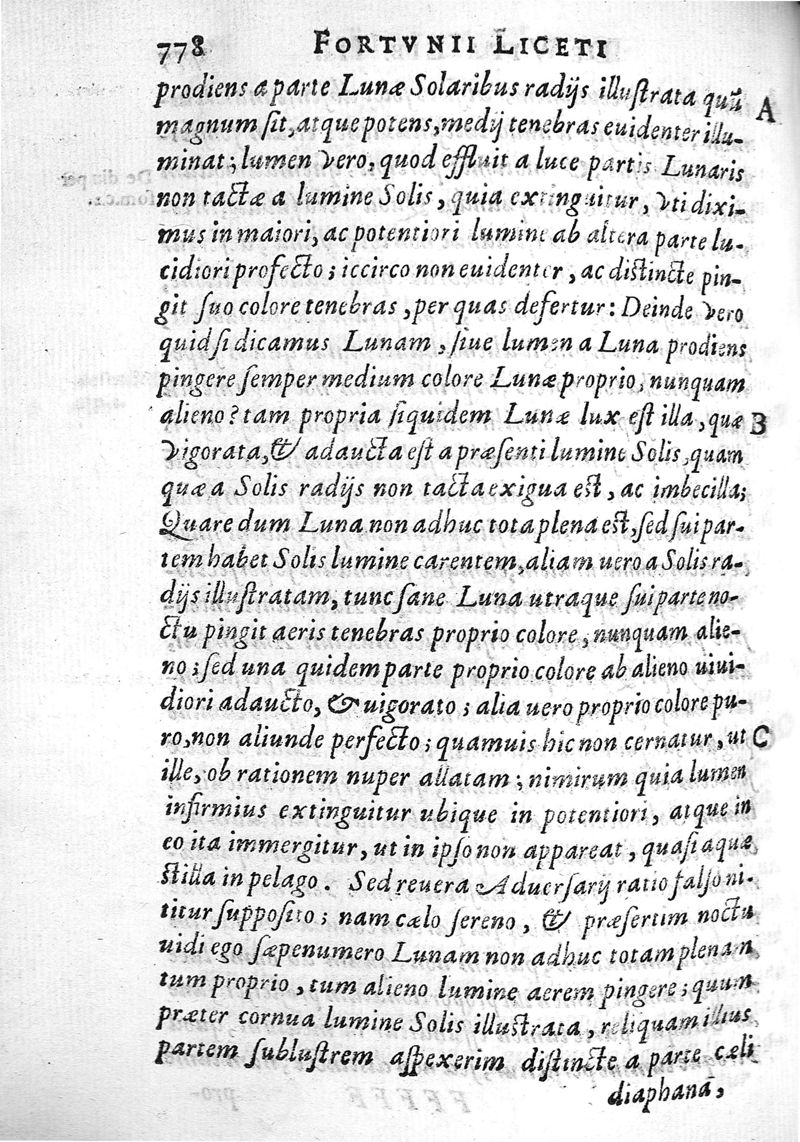 778 FORTVNII LICETI
prodiens a parte Lunæ Solaribus radijs illuſtrata quũ A
magnum ſit, atque potens, medij tenebras euidenter illu-
minat; lumen vero, quod effluit a luce partis Lunaris
non tactæ a lumine Solis, quia extinguitur, vti dixi-
mus in maiori, ac potentiori lumine ab altera parte lu-
cidiori profecto; iccirco non euidenter, ac diſtincte pin-
git ſuo colore tenebras, per quas defertur: Deinde vero
quid ſi dicamus Lunam, ſiue lumen a Luna prodiens
pingere ſemper medium colore Lunæ proprio, nunquam
alieno? tam propria ſiquidem Lunæ lux eſt illa, quæ B
vigorata, & adaucta eſt a præſenti lumine Solis, quam
quæ a Solis radijs non tacta exigua eſt, ac imbecilla;
Quare dum Luna non adhuc tota plena eſt, ſed ſui par-
tem habet Solis lumine carentem, aliam uero a Solis ra-
dijs illuſtratam, tunc ſane Luna utraque ſui parte no-
ctu pingit aeris tenebras proprio colore, nunquam alie-
no; ſed una quidem parte proprio colore ab alieno uiui-
diori adaucto, & uigorato; alia uero proprio colore pu-
ro, non aliunde perfecto; quamuis hic non cernatur, ut C
ille, ob rationem nuper allatam; nimirum quia lumen
infirmius extinguitur ubique in potentiori, atque in
eo ita immergitur, ut in ipſo non appareat, quaſi aquæ
ſtilla in pelago. Sed reuera Aduerſarij ratio falſo ni-
titur ſuppoſito; nam cælo ſereno, & præſertim noctu
uidi ego ſæpenumero Lunam non adhuc totam plenam,
tum proprio, tum alieno lumine aerem pingere; quum
præter cornua lumine Solis illuſtrata, reliquam illius
partem ſubluſtrem aſpexerim diſtincte a parte cæli
diaphana,